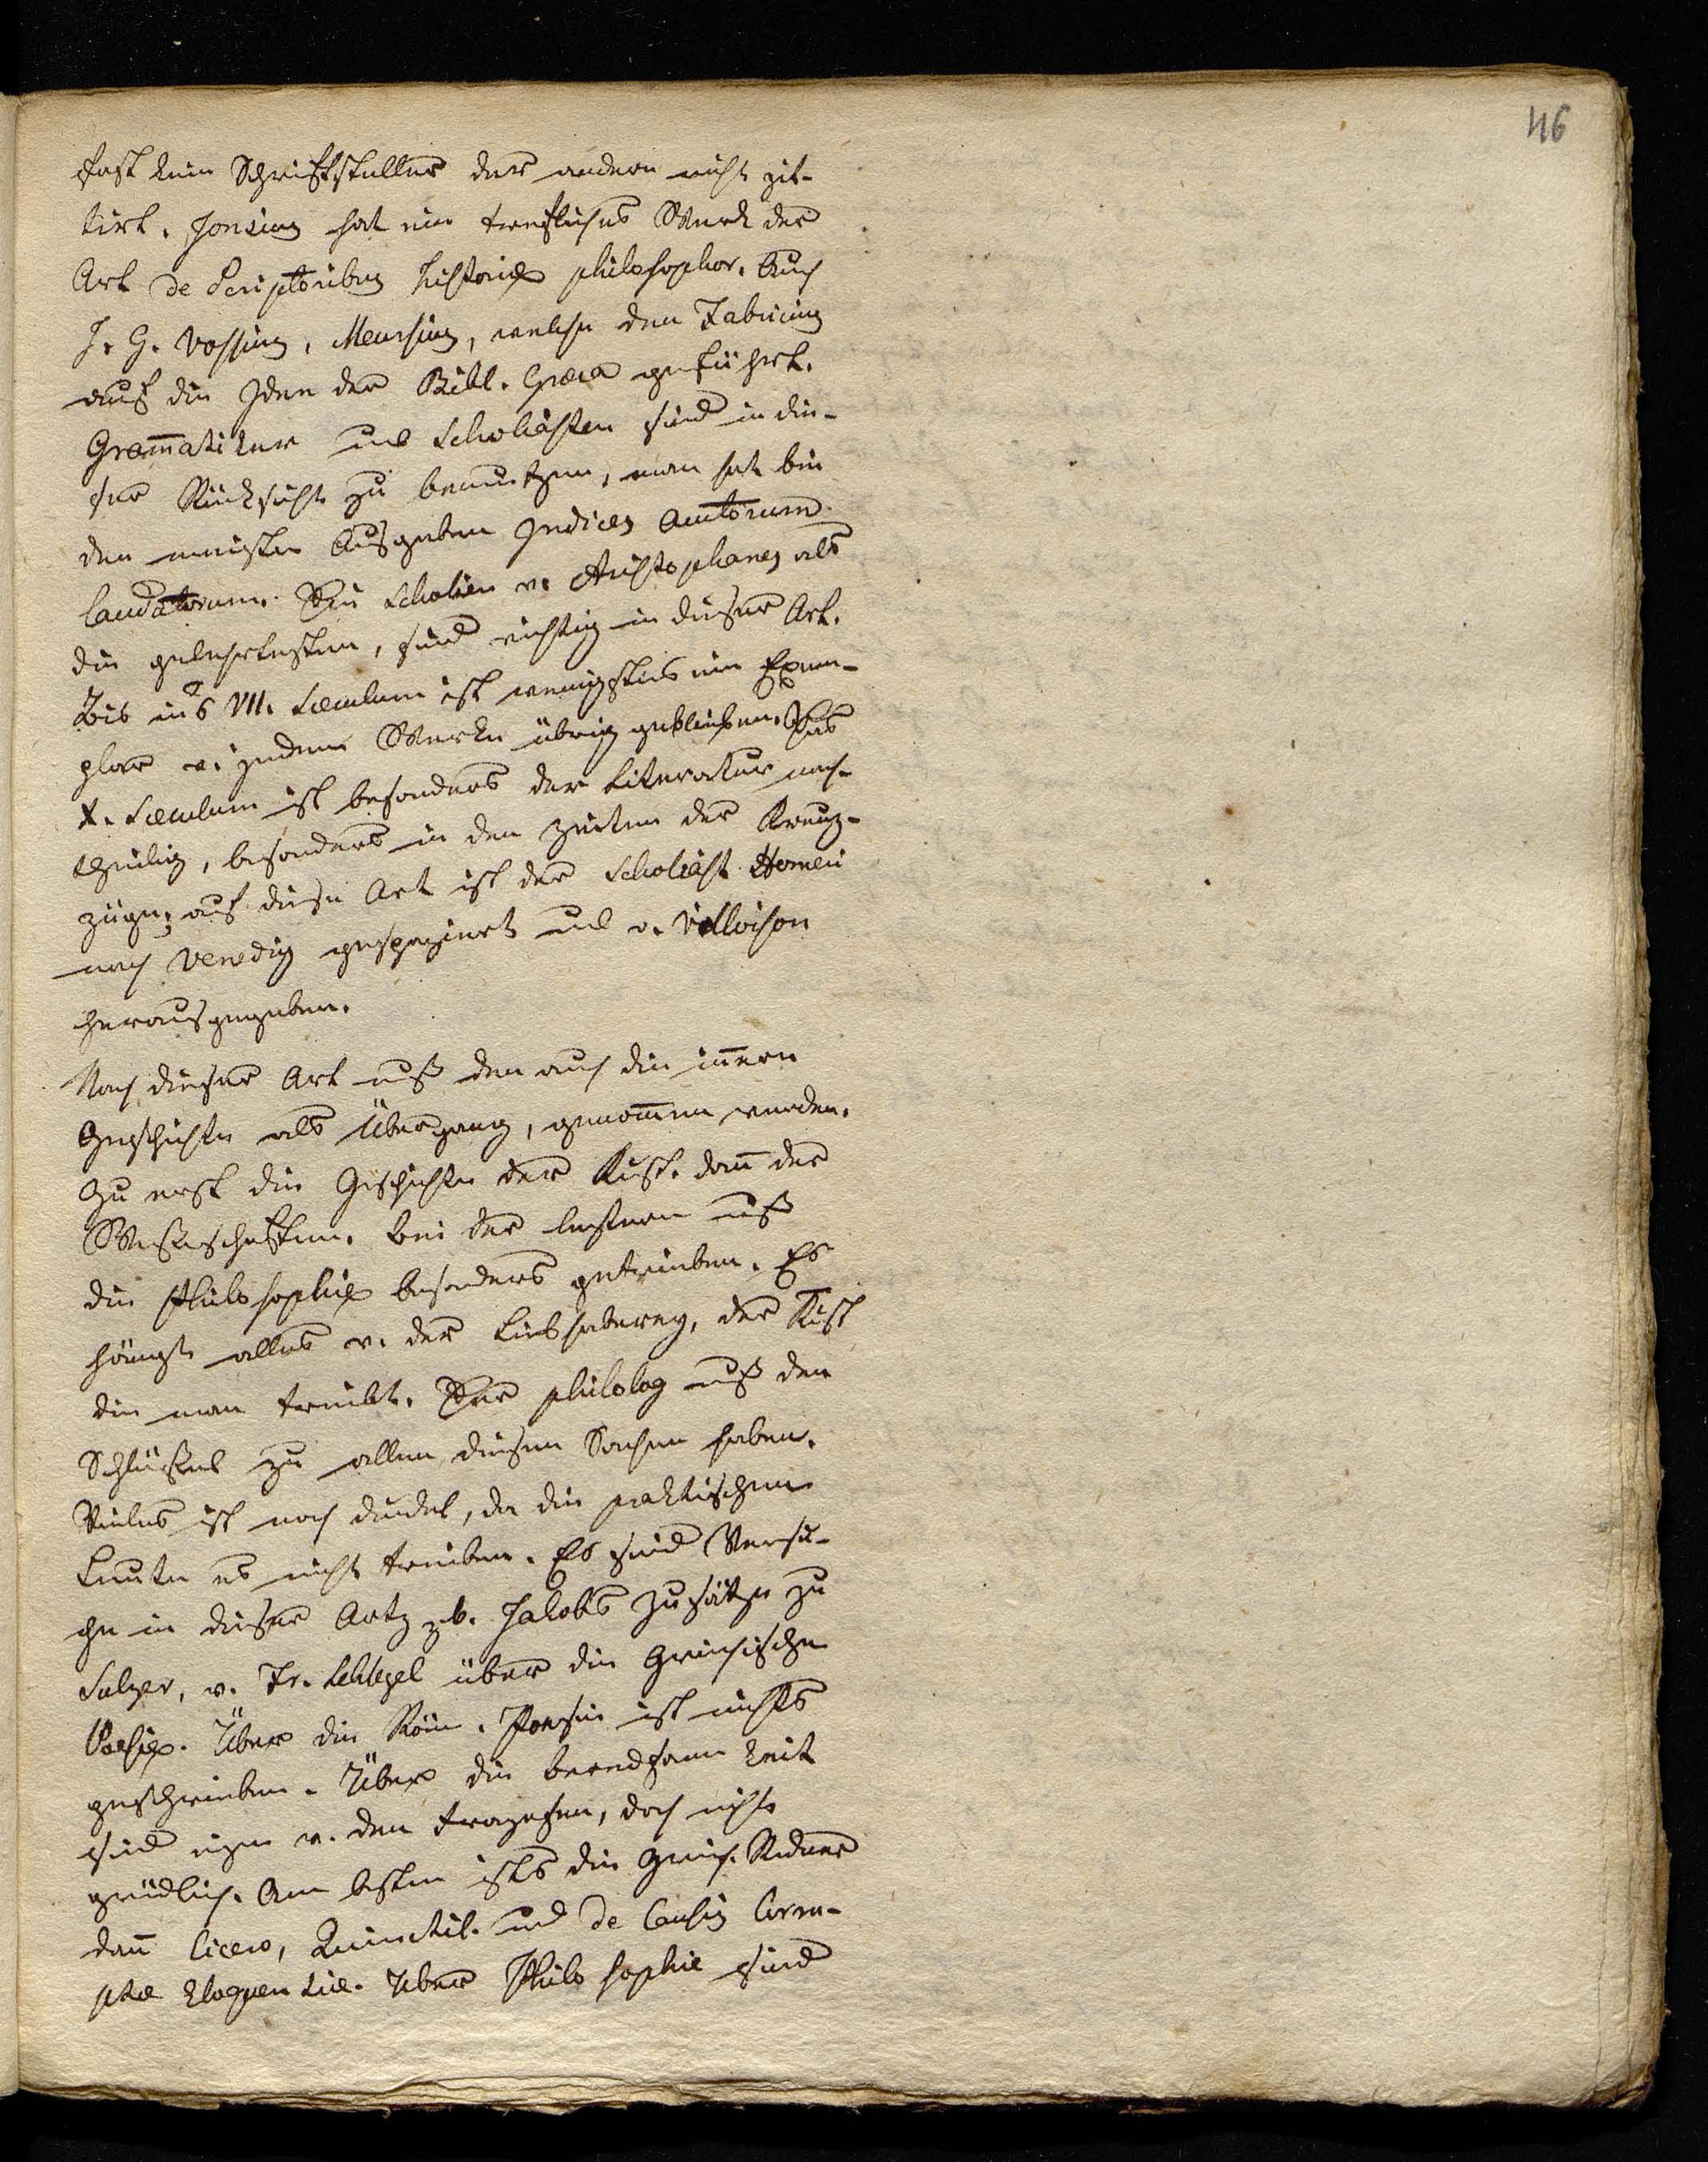 46
fast kein Schriftsteller der andern nicht zit-
tirt. Jonsius hat ein trefliches Werk der
Art de Scriptoribus historiae philosophor. Auch
J. G. Vossius, Meursius, welche den Fabricius
auf die Idee der Bibl. Graeca geführt.
Gram̄atiker und Scholiasten sind in die-
ser Rücksicht zu benutzen, man hat bei
den meisten Ausgaben Indices Autorum
laudatorum. Die Scholien v. Aristophanes als
die gelehrtesten, sind wichtig in dieser Art.
Bis ins VII. Saeculum ist wenigstens ein Exem-
plar v. jedem Werke übrig geblieben. Das
X. Saeculum ist besonders der Literatur nach-
theilig, besonders in den Zeiten der Kreuz-
züge; auf diese Art ist der Scholiast Homeri
nach Venedig gespaziert und v. Villoison
herausgegeben.
Nach dieser Art muß den auch die iñere
Geschichte als Übergang, genom̄en werden.
Zu erst die Geschichte der Kunst. dañ der
Wissenschaften. Bei der letztern muß
die Philosophie besonders getrieben. Es
hängt alles v. der Liebhaberey, der Kunst
die man treibt. Der Philolog muß den
Schlüssel zu allen diesen Sachen haben.
Vieles ist noch dunkel, da die praktischen
Leute es nicht treiben. Es sind Versu-
che in dieser Art z. b. Jakobs Zusätze zu
Sulzer, v. Fr. Schlegel über die Griechische
Poesie. Über die Röm. Poesie ist nichts
geschrieben. Über die Beredsamkeit
sind eigen v. den, doch nicht
gründlich. Am besten ists die Griech. Redner
dañ Cicero, Quinctil. und de Causis Corru-
ptae Eloquentiae. Über Philosophie sind